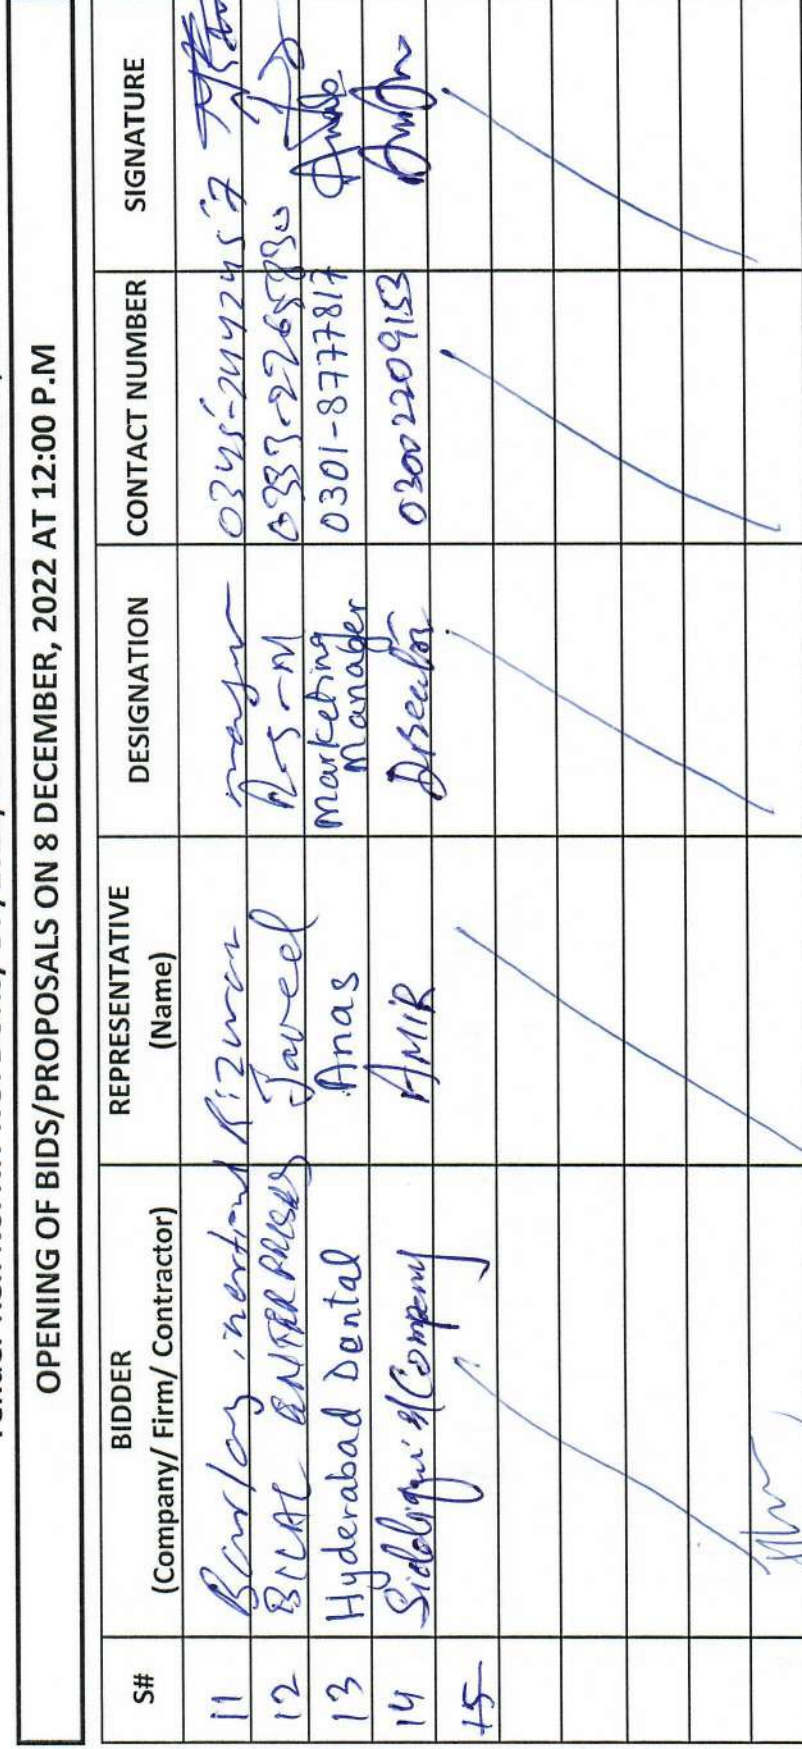 OPENING OF BIDS/PROPOSALS ON 8 DECEMBER, 2022 AT 12:00 P.M
S# BIDDER (Company/ Firm/ Contractor) REPRESENTATIVE (Name) DESIGNATION CONTACT NUMBER SIGNATURE
11 Rizwan 0345-2442457
12 BILAL ENTERPRISES Javeed R-S-M 0333-2265830
13 Hyderabad Dental Anas Marketing Manager 0301-8777817
14 Siddiqui & Company AMIR Director 03002209153
15